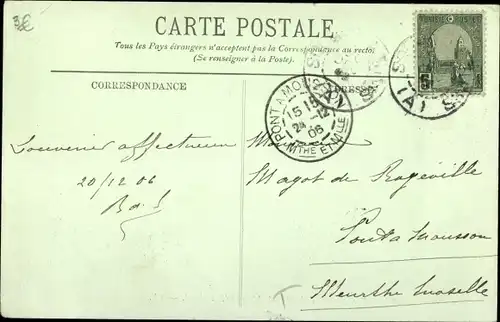 3€
CARTE POSTALE
Tous les Pays étrangers n'acceptent pas la Correspondance au recto.
(Se renseigner à la Poste).
CORRESPONDANCE
ADRESSE
PONT-A-MOUSSON
15 15
24 -12
06
MTHE ET MLLE
TUNISIE
5
Souvenir affectueux
20/12 06
Magot de Rogéville
Pont à Mousson
Meurthe Moselle
T